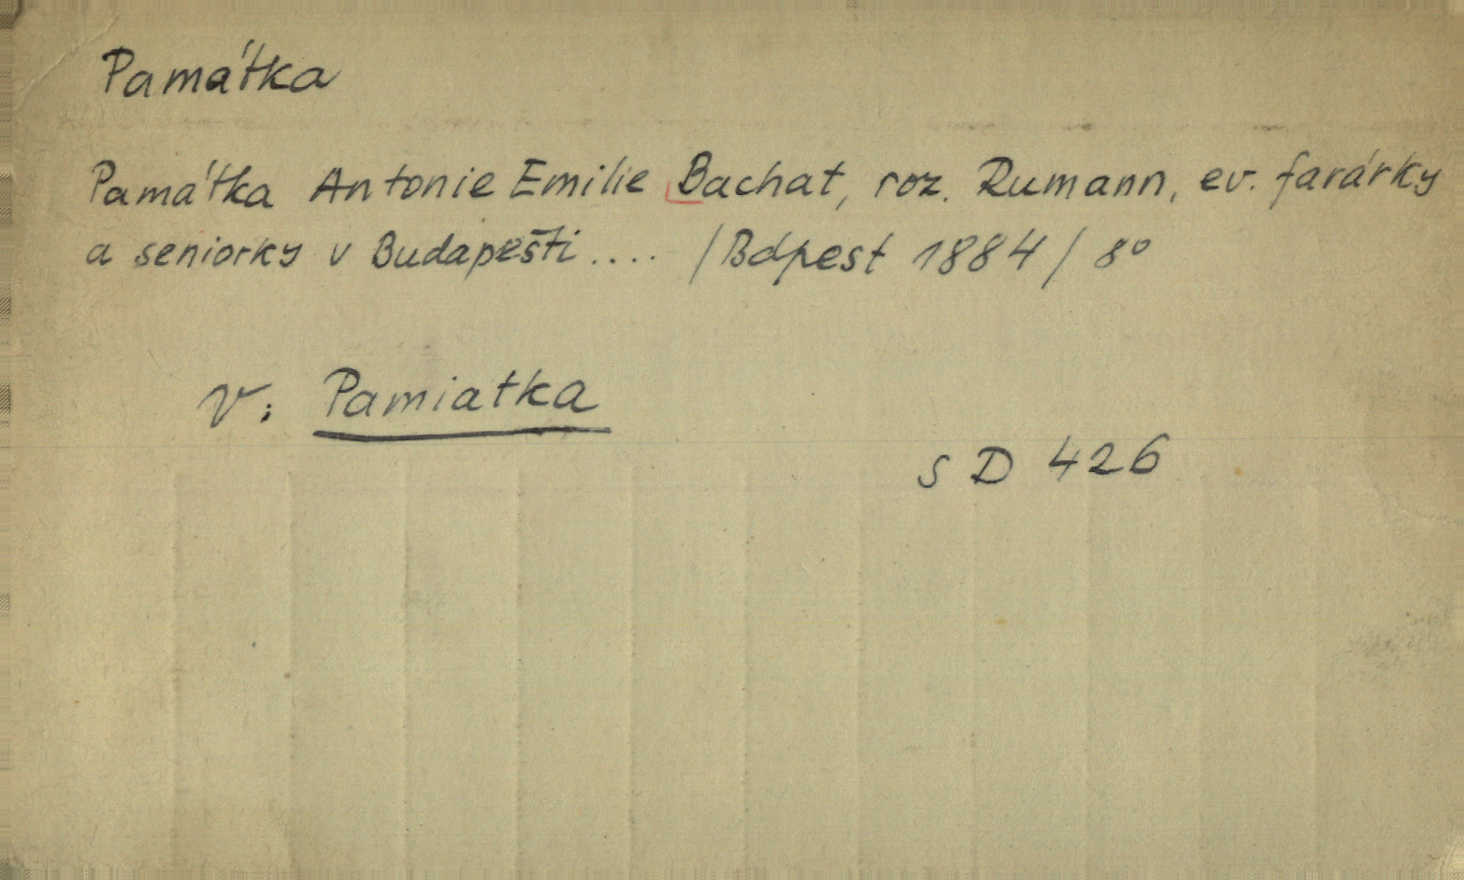 Památka
Památka Antonie Emilie Bachat, roz. Rumann, ev. farárky
a seniorky v Budapešti.... /Bdpest 1884/ 8º
V: Pamiatka
S D 426